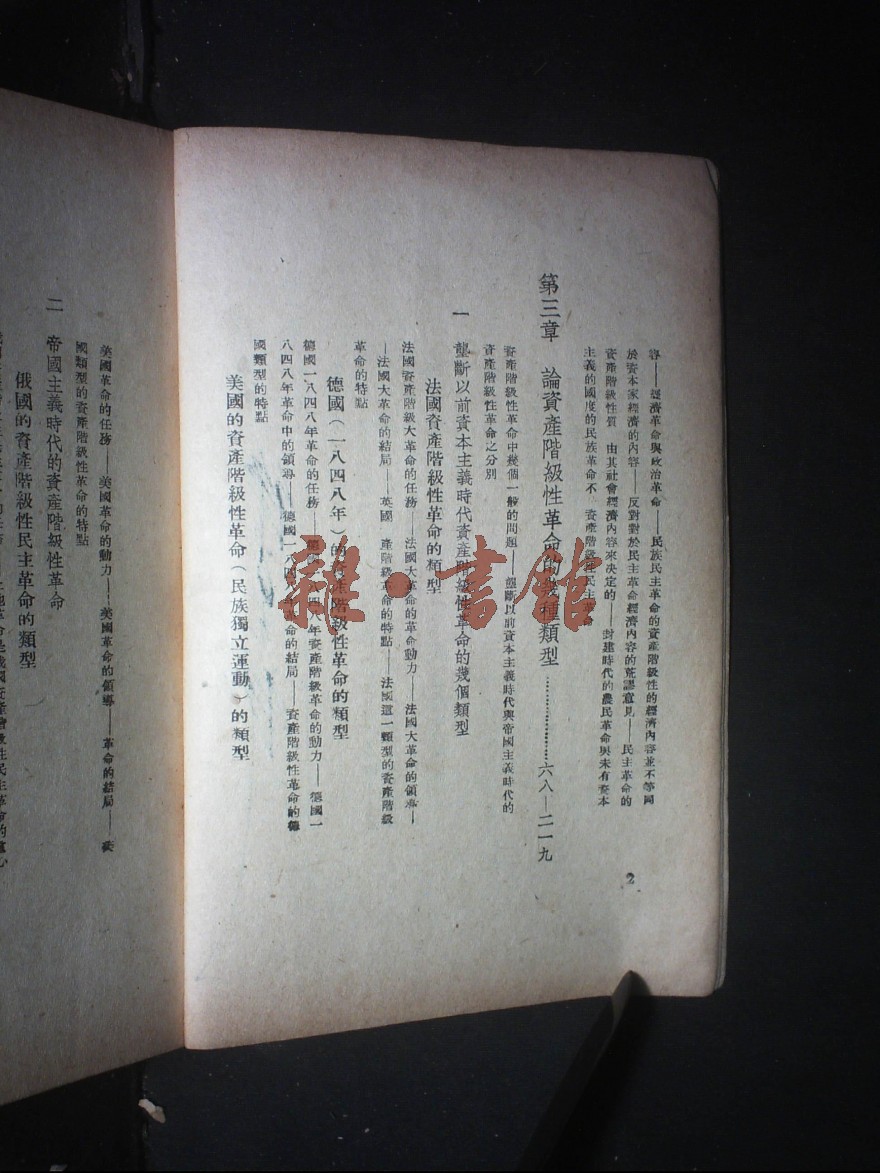 容——經濟革命與政治革命——民族民主革命的資產階級性的經濟內容並不等同
於資本家經濟的內容——反對對於民主革命經濟內容的荒謬意見——民主革命的
資產階級性質 由其社會經濟內容來決定的——封建時代的農民革命與未有資本
主義的國度的民族革命不 資產階級性民主革命
第三章 論資產階級性革命的幾種類型…………………六八—二一九
資產階級性革命中幾個一般的問題——壟斷以前資本主義時代與帝國主義時代的
資產階級性革命之分別
一 壟斷以前資本主義時代資產階級性革命的幾個類型
法國資產階級性革命的類型
法國資產階級大革命的任務——法國大革命的革命動力——法國大革命的領導—
—法國大革命的結局——英國 產階級革命的特點——法國這一類型的資產階級
革命的特點
德國（一八四八年）的資產階級性革命的類型
德國一八四八年革命的任務——德國一八四八年資產階級革命的動力——德國一
八四八年革命中的領導——德國一八四 命的結局——資產階級性革命的德
國類型的特點
美國的資產階級性革命（民族獨立運動）的類型
美國革命的任務——美國革命的動力——美國革命的領導——革命的結局——美
國類型的資產階級性革命的特點
二 帝國主義時代的資產階級性革命
俄國的資產階級性民主革命的類型
2
雜·書館